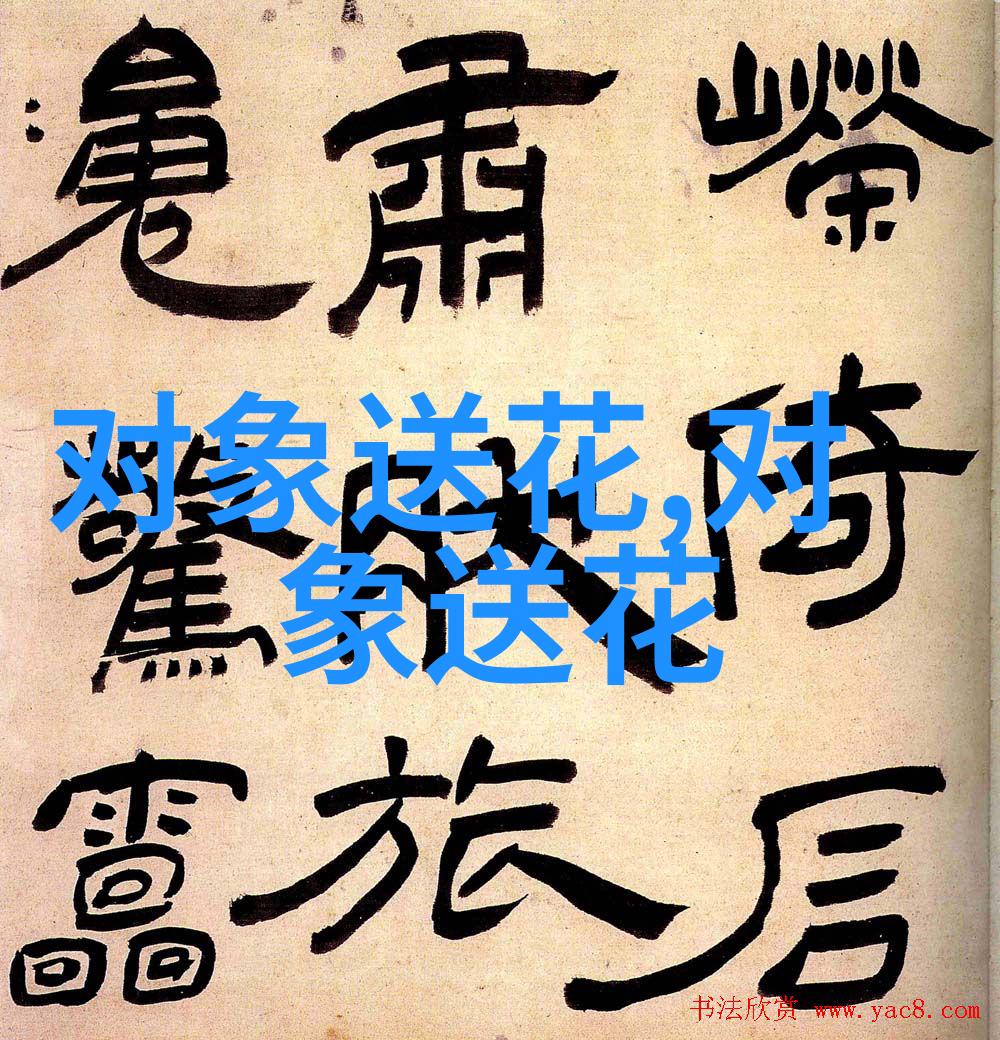 嶸倚
肅旅
驚靁
对象送花,对
象送花
书法欣赏 www.yac8.com